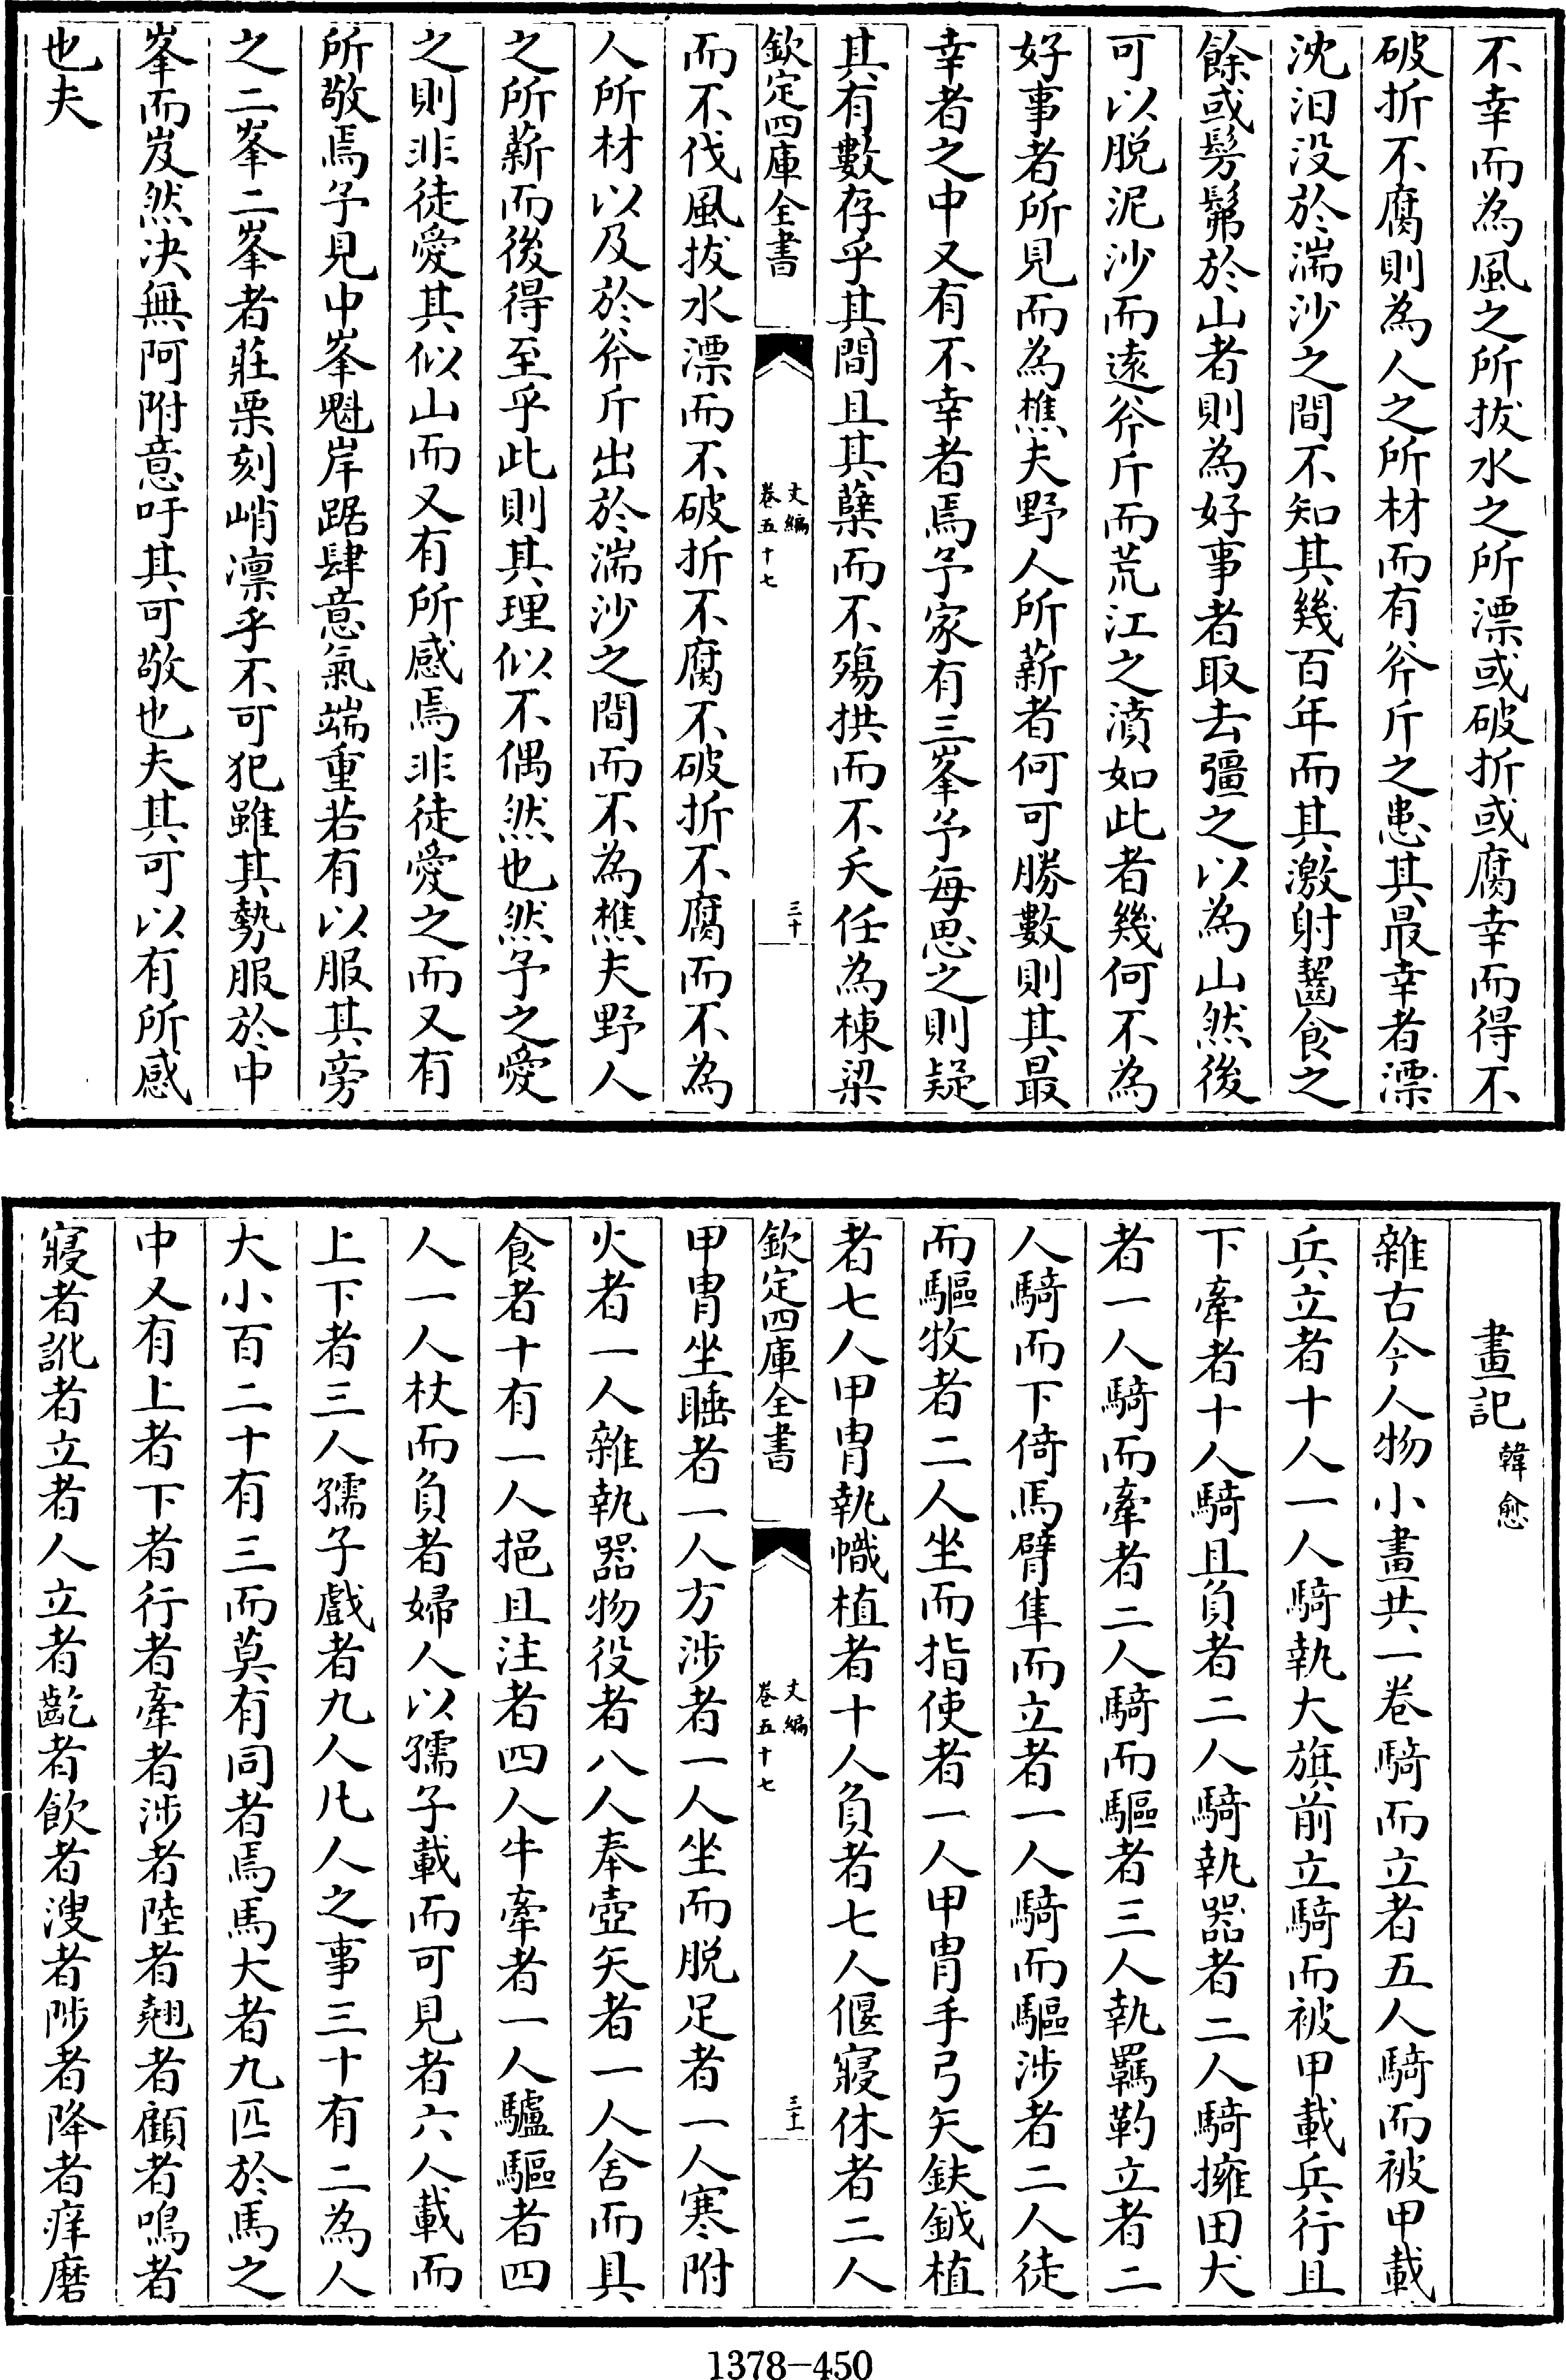 不幸而為風之所拔水之所漂或破折或腐幸而得不
破折不腐則為人之所材而有斧斤之患其最幸者漂
沈汨没於湍沙之間不知其幾百年而其激射齧食之
餘或髣髴於山者則為好事者取去彊之以為山然後
可以脱泥沙而逺斧斤而荒江之濆如此者幾何不為
好事者所見而為樵夫野人所薪者何可勝數則其最
幸者之中又有不幸者焉予家有三峯予每思之則疑
其有數存乎其間且其蘖而不殤拱而不夭任為棟梁
欽定四庫全書
文編
卷五十七
三十
而不伐風拔水漂而不破折不腐不破折不腐而不為
人所材以及於斧斤出於湍沙之間而不為樵夫野人
之所薪而後得至乎此則其理似不偶然也然予之愛
之則非徒愛其似山而又有所感焉非徒愛之而又有
所敬焉予見中峯魁岸踞肆意氣端重若有以服其旁
之二峯二峯者莊栗刻峭凛乎不可犯雖其勢服於中
峯而岌然决無阿附意吁其可敬也夫其可以有所感
也夫
畫記韓愈
雜古今人物小畫共一卷騎而立者五人騎而被甲載
兵立者十人一人騎執大旗前立騎而被甲載兵行且
下牽者十人騎且負者二人騎執器者二人騎擁田犬
者一人騎而牽者二人騎而驅者三人執羈靮立者二
人騎而下倚馬臂隼而立者一人騎而驅涉者二人徒
而驅牧者二人坐而指使者一人甲冑手弓矢鈇鉞植
者七人甲冑執幟植者十人負者七人偃寢休者二人
欽定四庫全書
文編
卷五十七
三十一
甲冑坐睡者一人方涉者一人坐而脱足者一人寒附
火者一人雜執器物役者八人奉壺矢者一人舍而具
食者十有一人挹且注者四人牛牽者一人驢驅者四
人一人杖而負者婦人以孺子載而可見者六人載而
上下者三人孺子戲者九人凡人之事三十有二為人
大小百二十有三而莫有同者焉馬大者九匹於馬之
中又有上者下者行者牽者涉者陸者翹者顧者鳴者
寢者訛者立者人立者齕者飲者溲者陟者降者痒磨
1378-450